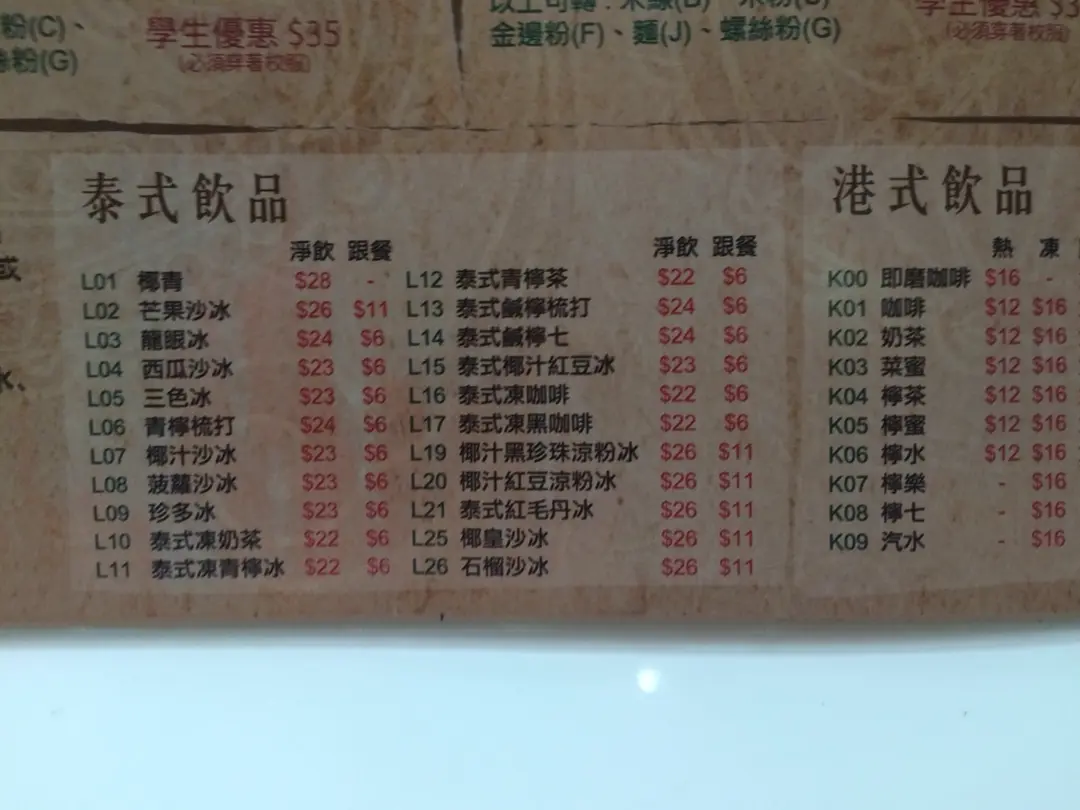 粉(C)、
學生優惠 $35
金邊粉(F)、麵(J)、螺絲粉(G)
絲粉(G)
(必須穿著校服)
學生優惠
(必須穿著校服)
或
泰式飲品
淨飲 跟餐
L01 椰青 $28 -
L02 芒果沙冰 $26 $11
L03 龍眼冰 $24 $6
L04 西瓜沙冰 $23 $6
L05 三色冰 $23 $6
L06 青檸梳打 $24 $6
L07 椰汁沙冰 $23 $6
L08 菠蘿沙冰 $23 $6
L09 珍多冰 $23 $6
L10 泰式凍奶茶 $22 $6
L11 泰式凍青檸冰 $22 $6
淨飲 跟餐
L12 泰式青檸茶 $22 $6
L13 泰式鹹檸梳打 $24 $6
L14 泰式鹹檸七 $24 $6
L15 泰式椰汁紅豆冰 $23 $6
L16 泰式凍咖啡 $22 $6
L17 泰式凍黑咖啡 $22 $6
L19 椰汁黑珍珠涼粉冰 $26 $11
L20 椰汁紅豆涼粉冰 $26 $11
L21 泰式紅毛丹冰 $26 $11
L25 椰皇沙冰 $26 $11
L26 石榴沙冰 $26 $11
港式飲品
熱 凍
K00 即磨咖啡 $16 -
K01 咖啡 $12 $16
K02 奶茶 $12 $16
K03 菜蜜 $12 $16
K04 檸茶 $12 $16
K05 檸蜜 $12 $16
K06 檸水 $12 $16
K07 檸樂 - $16
K08 檸七 - $16
K09 汽水 - $16